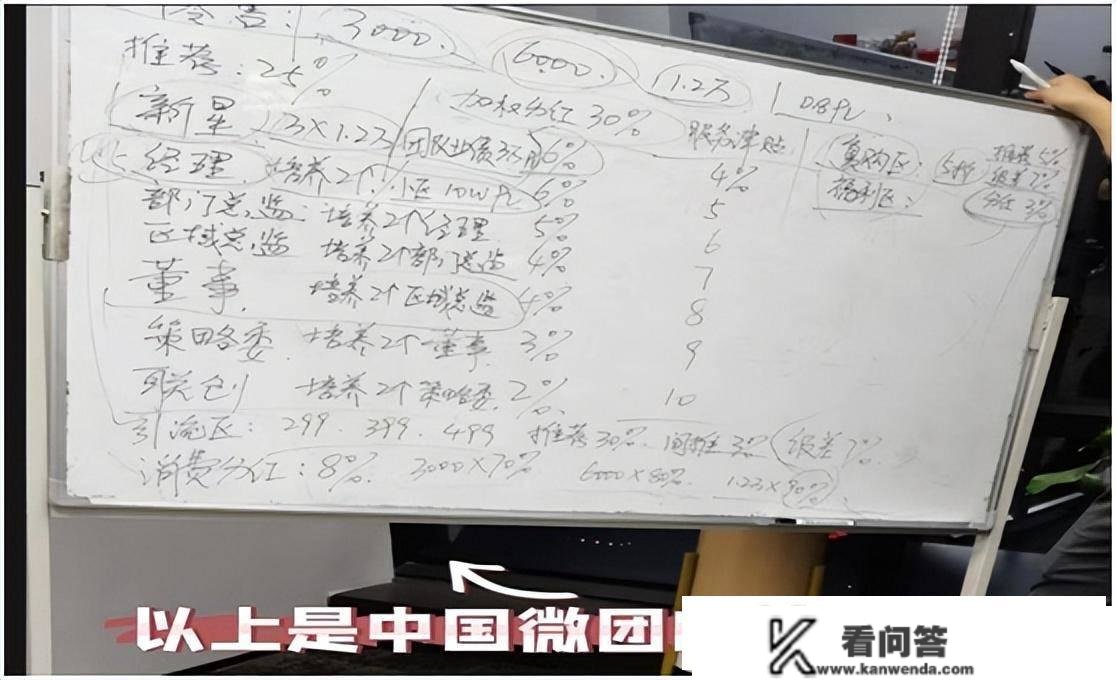 3000. 6000. 1.2万 0.8PV、
推荐:25%
加权分红30% 服务津贴 复购区: 5折 推荐5%
新星 3×1.2万 团队业绩 6% 4% 级差7%
福利区: 分红3%
经理 培养2个 小区10W PV 6% 5
部门总监: 培养2个经理 5% 6
区域总监 培养2个部门总监 4% 7
董事. 培养2个区域总监 4% 8
策略委. 培养2个董事 3% 9
联创 培养2个策略委. 2% 10
引流区: 299. 399. 499 推荐30%. 间推3% 级差7%
消费分红: 8%. 3000×70% 6000×80%. 1.2万×90%、
以上是中国微团
看问答
www.kanwenda.com